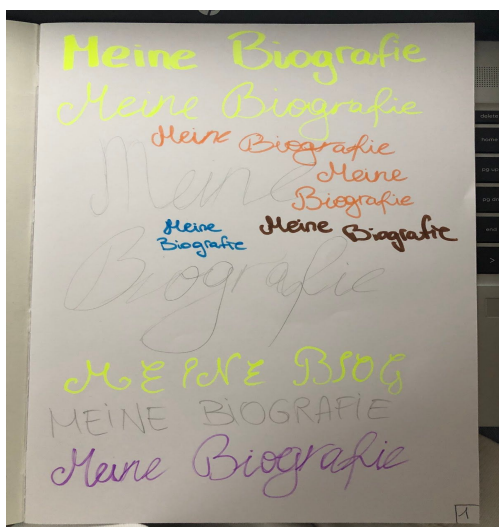 Meine Biografie
Meine Biografie
Meine Biografie
Meine
Meine
Biografie
Meine
Biografie
Meine Biografie
Biografie
MEINE BIOG
MEINE BiOGRAFiE
Meine Biografie
1
delete
home
pg up
pg dn
end